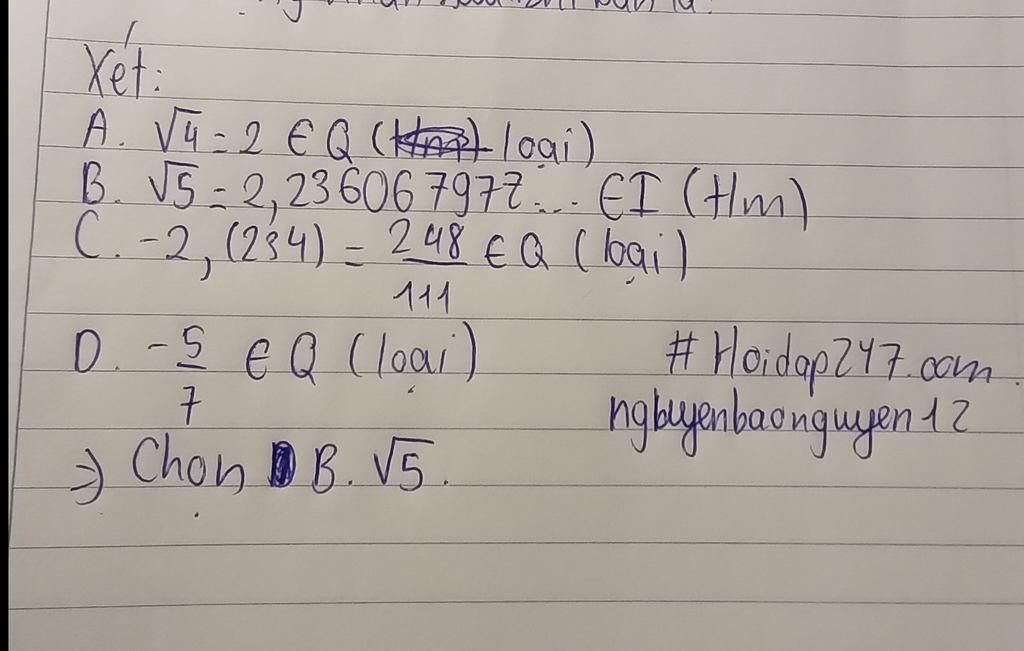 Xét:
A. √4 = 2 ∈ Q ( loại)
B. √5 = 2,236067977... ∈ I (t/m)
C. -2, (234) = 248/111 ∈ Q (loại)
D. -5/7 ∈ Q (loại)
#Hoidap247.com
ngbuyenbaonguyen12
=) Chọn B. √5.